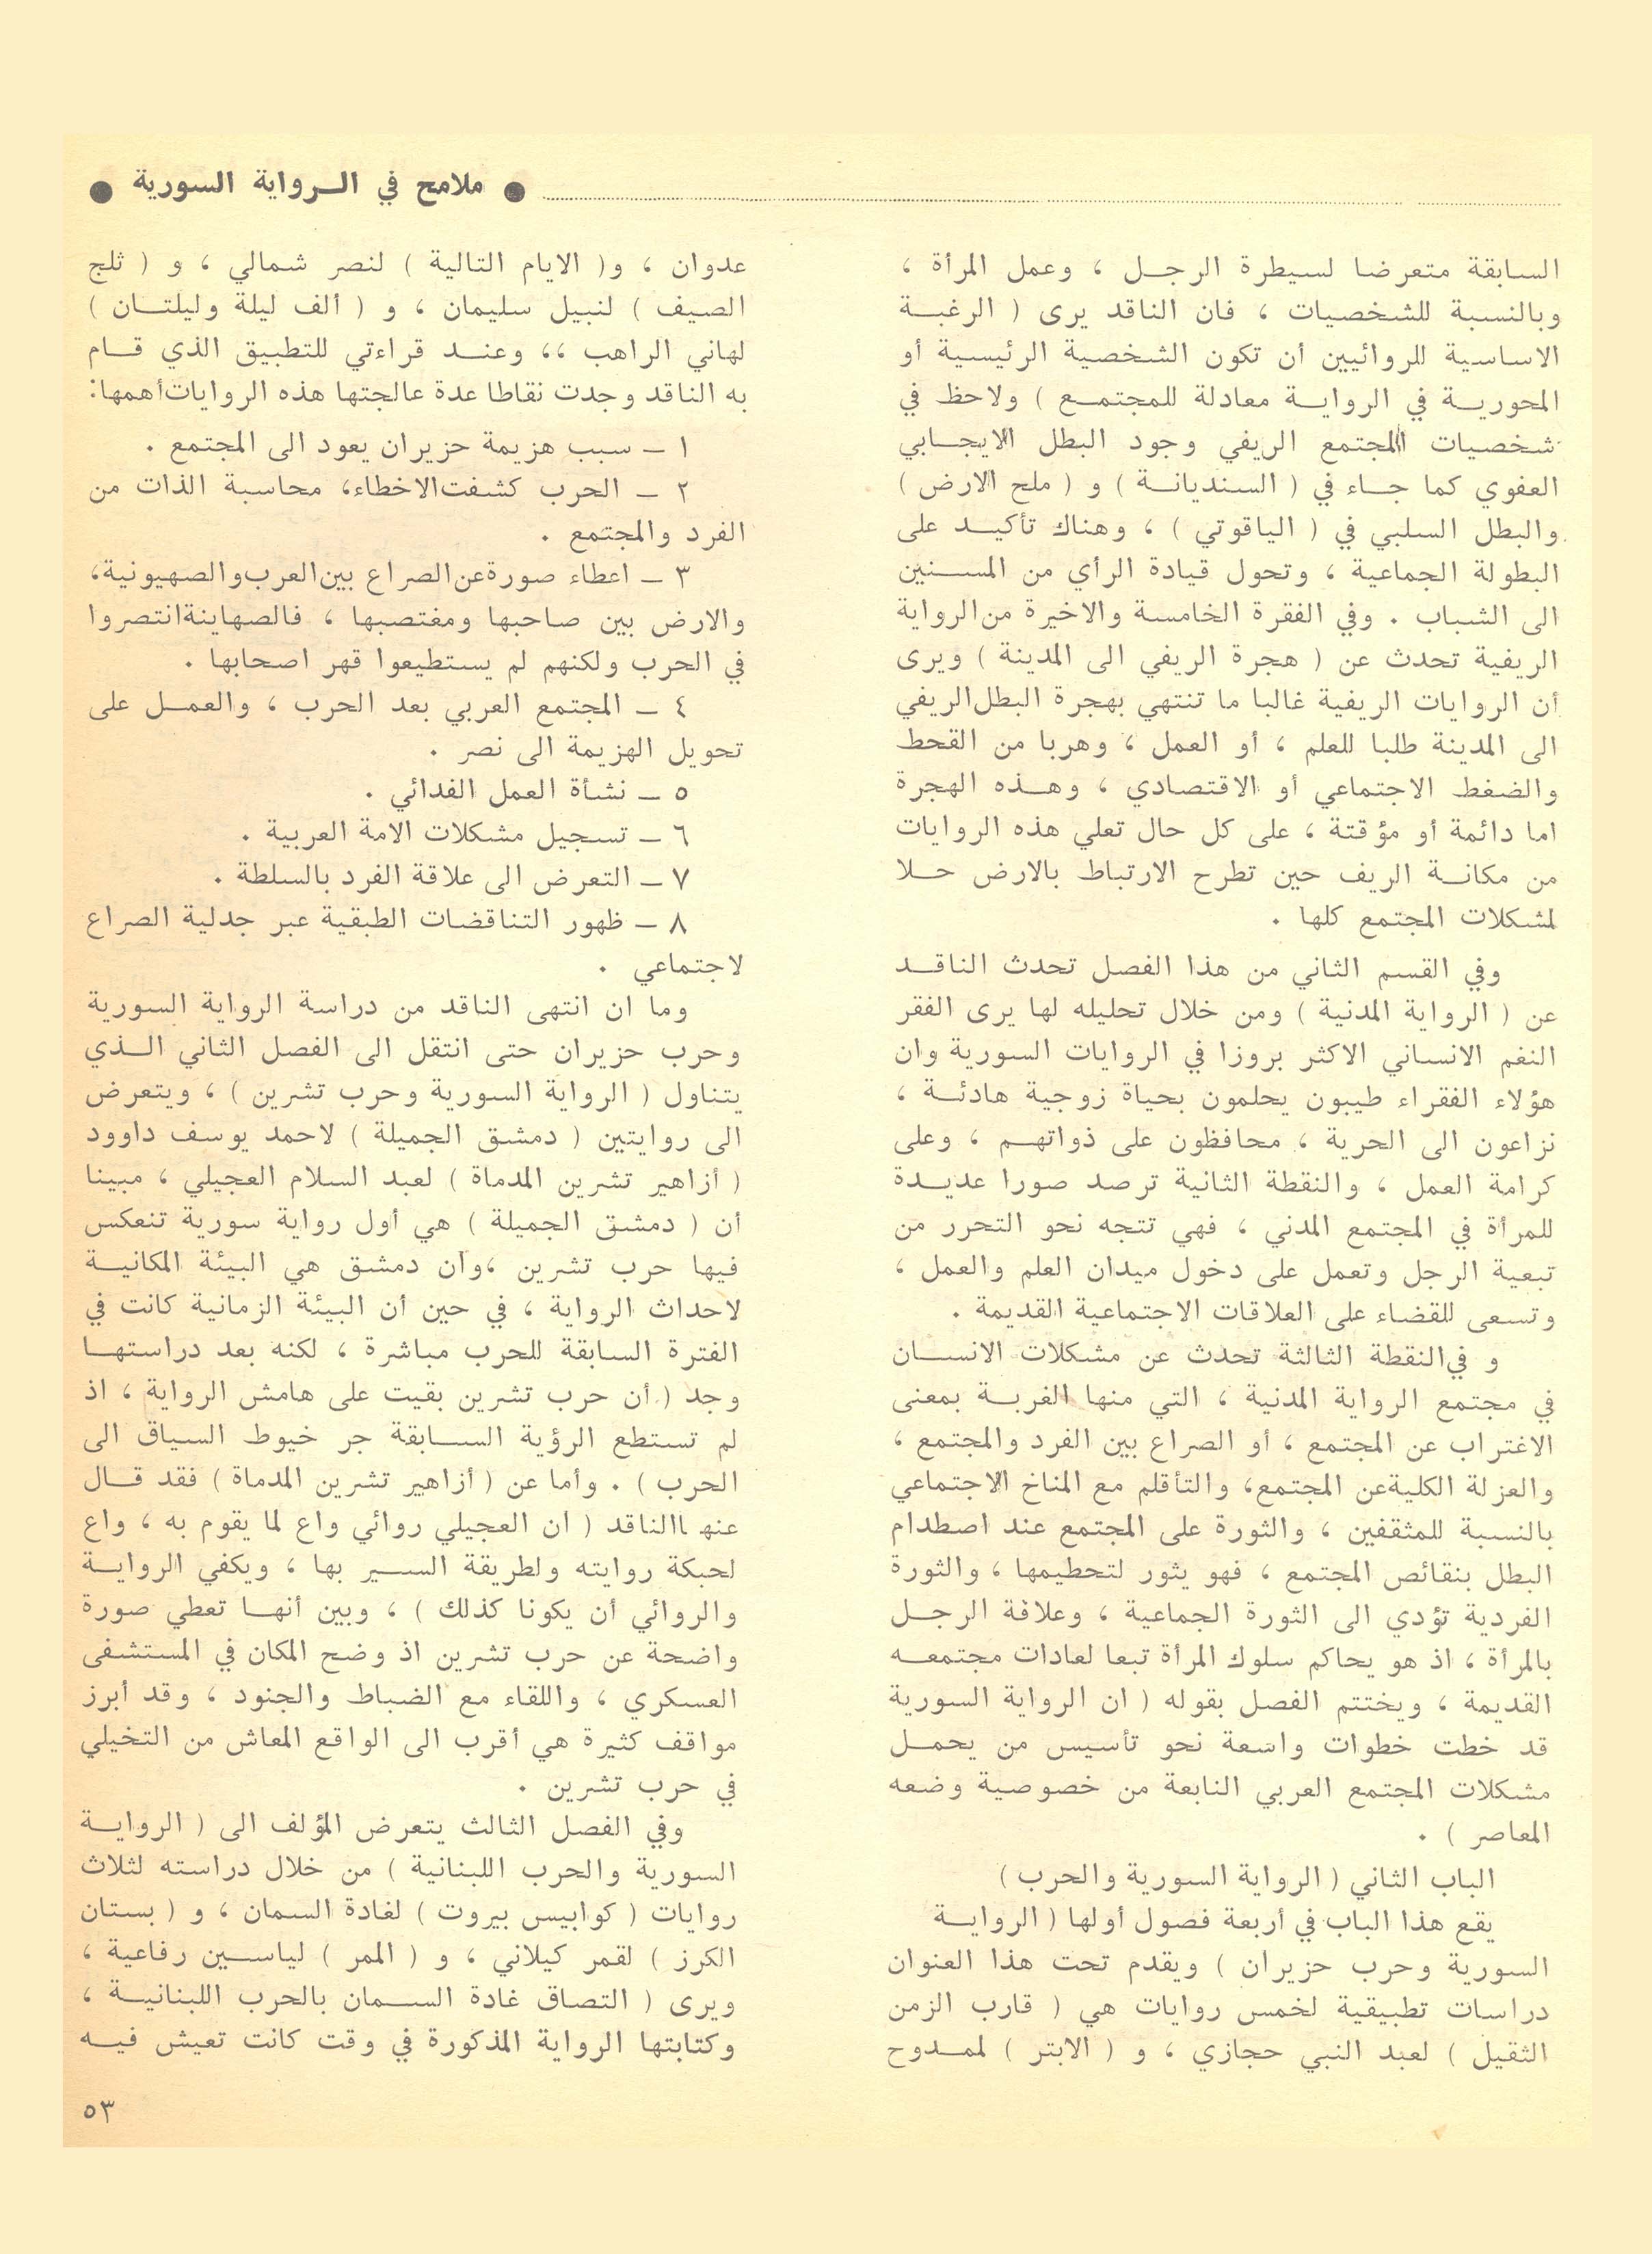 ● ملامح في الـرواية السورية ●
السابقة متعرضا لسيطرة الرجـل ، وعمل المرأة ،
وبالنسبة للشخصيات ، فان الناقد يرى ( الرغبـة
الاساسية للروائيين أن تكون الشخصية الرئيسية أو
المحوريـة في الروايـة معادلة للمجتمـع ) ولاحظ في
شخصيات المجتمع الريفي وجود البطل الايجـابي
العفوي كما جـاء في ( السنديانـة ) و ( ملح الارض )
والبطل السلبي في ( الياقوتي ) ، وهناك تأكيـد على
البطولة الجماعية ، وتحول قيادة الرأي من المسـنين
الى الشباب . وفي الفقرة الخامسة والاخيرة من الرواية
الريفية تحدث عن ( هجرة الريفي الى المدينة ) ويرى
أن الروايات الريفية غالبا ما تنتهي بهجرة البطل الريفي
الى المدينة طلبا للعلم ، أو العمل ، وهربا من القحط
والضغط الاجتماعي أو الاقتصادي ، وهـذه الهجرة
اما دائمة أو مؤقتة ، على كل حال تعلي هذه الروايات
من مكانـة الريف حين تطرح الارتباط بالارض حـلا
لمشكلات المجتمع كلها .
وفي القسم الثاني من هذا الفصل تحدث الناقـد
عن ( الرواية المدنية ) ومن خلال تحليله لها يرى الفقر
النغم الانساني الاكثر بروزا في الروايات السورية وان
هؤلاء الفقراء طيبون يحلمون بحياة زوجية هادئـة ،
نزاعون الى الحرية ، محافظون على ذواتهـم ، وعلى
كرامة العمل ، والنقطة الثانية ترصد صورا عديـدة
للمرأة في المجتمع المدني ، فهي تتجه نحو التحرر من
تبعية الرجل وتعمل على دخول ميدان العلم والعمل ،
وتسعى للقضاء على العلاقات الاجتماعية القديمة .
و في النقطة الثالثة تحدث عن مشكلات الانسـان
في مجتمع الرواية المدنية ، التي منها الغربـة بمعنى
الاغتراب عن المجتمع ، أو الصراع بين الفرد والمجتمع ،
والعزلة الكلية عن المجتمع، والتأقلم مع المناخ الاجتماعي
بالنسبة للمثقفين ، والثورة على المجتمع عند اصطدام
البطل بنقائص المجتمع ، فهو يثور لتحطيمها ، والثورة
الفردية تؤدي الى الثورة الجماعية ، وعلاقة الرجـل
بالمرأة ، اذ هو يحاكم سلوك المرأة تبعا لعادات مجتمعـه
القديمة ، ويختتم الفصل بقوله ( ان الرواية السورية
قد خطت خطوات واسعة نحو تأسيس من يحمـل
مشكلات المجتمع العربي النابعة من خصوصية وضعه
المعاصر ) .
الباب الثاني ( الرواية السورية والحرب )
يقع هذا الباب في أربعة فصول أولها ( الروايـة
السورية وحرب حزيران ) ويقدم تحت هذا العنوان
دراسات تطبيقية لخمس روايات هي ( قارب الزمن
الثقيل ) لعبد النبي حجازي ، و ( الابتر ) لممـدوح
عدوان ، و( الايام التالية ) لنصر شمالي ، و ( ثلج
الصيف ) لنبيل سليمان ، و ( ألف ليلة وليلتـان )
لهاني الراهب ،، وعنـد قراءتي للتطبيق الذي قـام
به الناقد وجدت نقاطا عدة عالجتها هذه الروايات أهمها:
١ ـ سبب هزيمة حزيران يعود الى المجتمع .
٢ ـ الحرب كشفت الاخطاء، محاسبة الذات من
الفرد والمجتمع .
٣ ـ اعطاء صورة عن الصراع بين العرب والصهيونية،
والارض بين صاحبها ومغتصبها ، فالصهاينة انتصروا
في الحرب ولكنهم لم يستطيعوا قهر اصحابها .
٤ ـ المجتمع العربي بعد الحرب ، والعمـل على
تحويل الهزيمة الى نصر .
٥ ـ نشأة العمل الفدائي .
٦ ـ تسجيل مشكلات الامة العربية .
٧ ـ التعرض الى علاقة الفرد بالسلطة .
٨ ـ ظهور التناقضات الطبقية عبر جدلية الصراع
لاجتماعي .
وما ان انتهى الناقد من دراسة الرواية السورية
وحرب حزيران حتى انتقل الى الفصل الثاني الـذي
يتناول ( الرواية السورية وحرب تشرين ) ، ويتعرض
الى روايتين ( دمشق الجميلة ) لاحمد يوسف داوود
( أزاهير تشرين المدماة ) لعبد السلام العجيلي ، مبينا
أن ( دمشق الجميلة ) هي أول رواية سورية تنعكس
فيها حرب تشرين ،وأن دمشق هي البيئة المكانيـة
لاحداث الرواية ، في حين أن البيئة الزمانية كانت في
الفترة السابقة للحرب مباشرة ، لكنه بعد دراستهـا
وجد ( أن حرب تشرين بقيت على هامش الرواية ، اذ
لم تستطع الرؤية السـابقة جر خيوط السياق الى
الحرب ) . وأما عن ( أزاهير تشرين المدماة ) فقد قـال
عنها الناقد ( ان العجيلي روائي واع لما يقوم به ، واع
لحبكة روايته ولطريقة السـير بها ، ويكفي الروايـة
والروائي أن يكونا كذلك ) ، وبين أنهـا تعطي صورة
واضحة عن حرب تشرين اذ وضح المكان في المستشفى
العسكري ، واللقاء مع الضباط والجنود ، وقد أبرز
مواقف كثيرة هي أقرب الى الواقع المعاش من التخيلي
في حرب تشرين .
وفي الفصل الثالث يتعرض المؤلف الى ( الروايـة
السورية والحرب اللبنانية ) من خلال دراسته لثلاث
روايات ( كوابيس بيروت ) لغادة السمان ، و ( بستان
الكرز ) لقمر كيلاني ، و ( الممر ) لياسـين رفاعية ،
ويرى ( التصاق غادة السـمان بالحرب اللبنانيـة ،
وكتابتها الرواية المذكورة في وقت كانت تعيش فيـه
٥٣